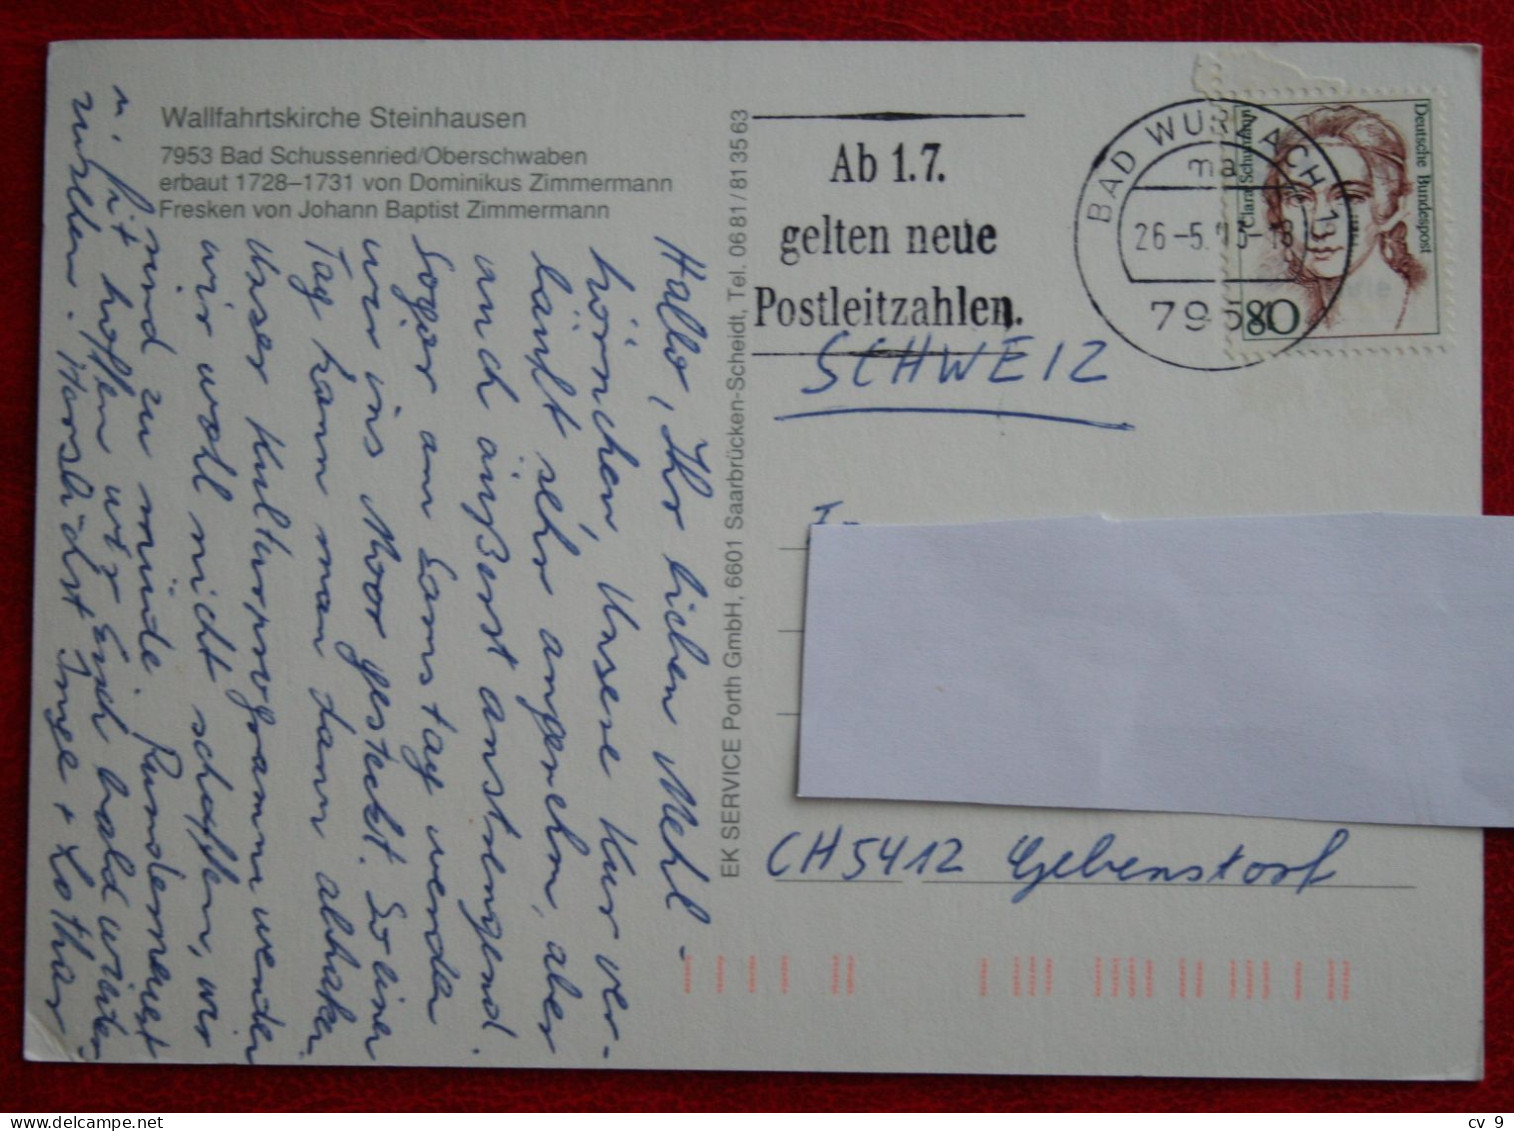 Wallfahrtskirche Steinhausen
7953 Bad Schussenried/Oberschwaben
erbaut 1728–1731 von Dominikus Zimmermann
Fresken von Johann Baptist Zimmermann
Hallo, Ihr lieben Mehl-
hörnchen, Unsere Kur ver-
läuft sehr angenehm, aber
auch äußerst anstrengend.
Sogar am Samstag werden
wir ins Moor gesteckt. So einen
Tag kann man dann abhaken.
Unser Kulturprogramm werden
wir wohl nicht schaffen, wir
sind zu müde. Runderneuert
u. fit hoffen wir Euch bald wieder
zusehen. Herzlichst Inge + Lothar
EK SERVICE Porth GmbH, 6601 Saarbrücken-Scheidt, Tel. 06 81 / 81 35 63
Ab 1.7.
gelten neue
Postleitzahlen.
BAD WURZACH 1
ma
26-5.
795
Deutsche Bundespost
Clara Schumann
80
SCHWEIZ
CH 5412 Gebenstorf
cv 9